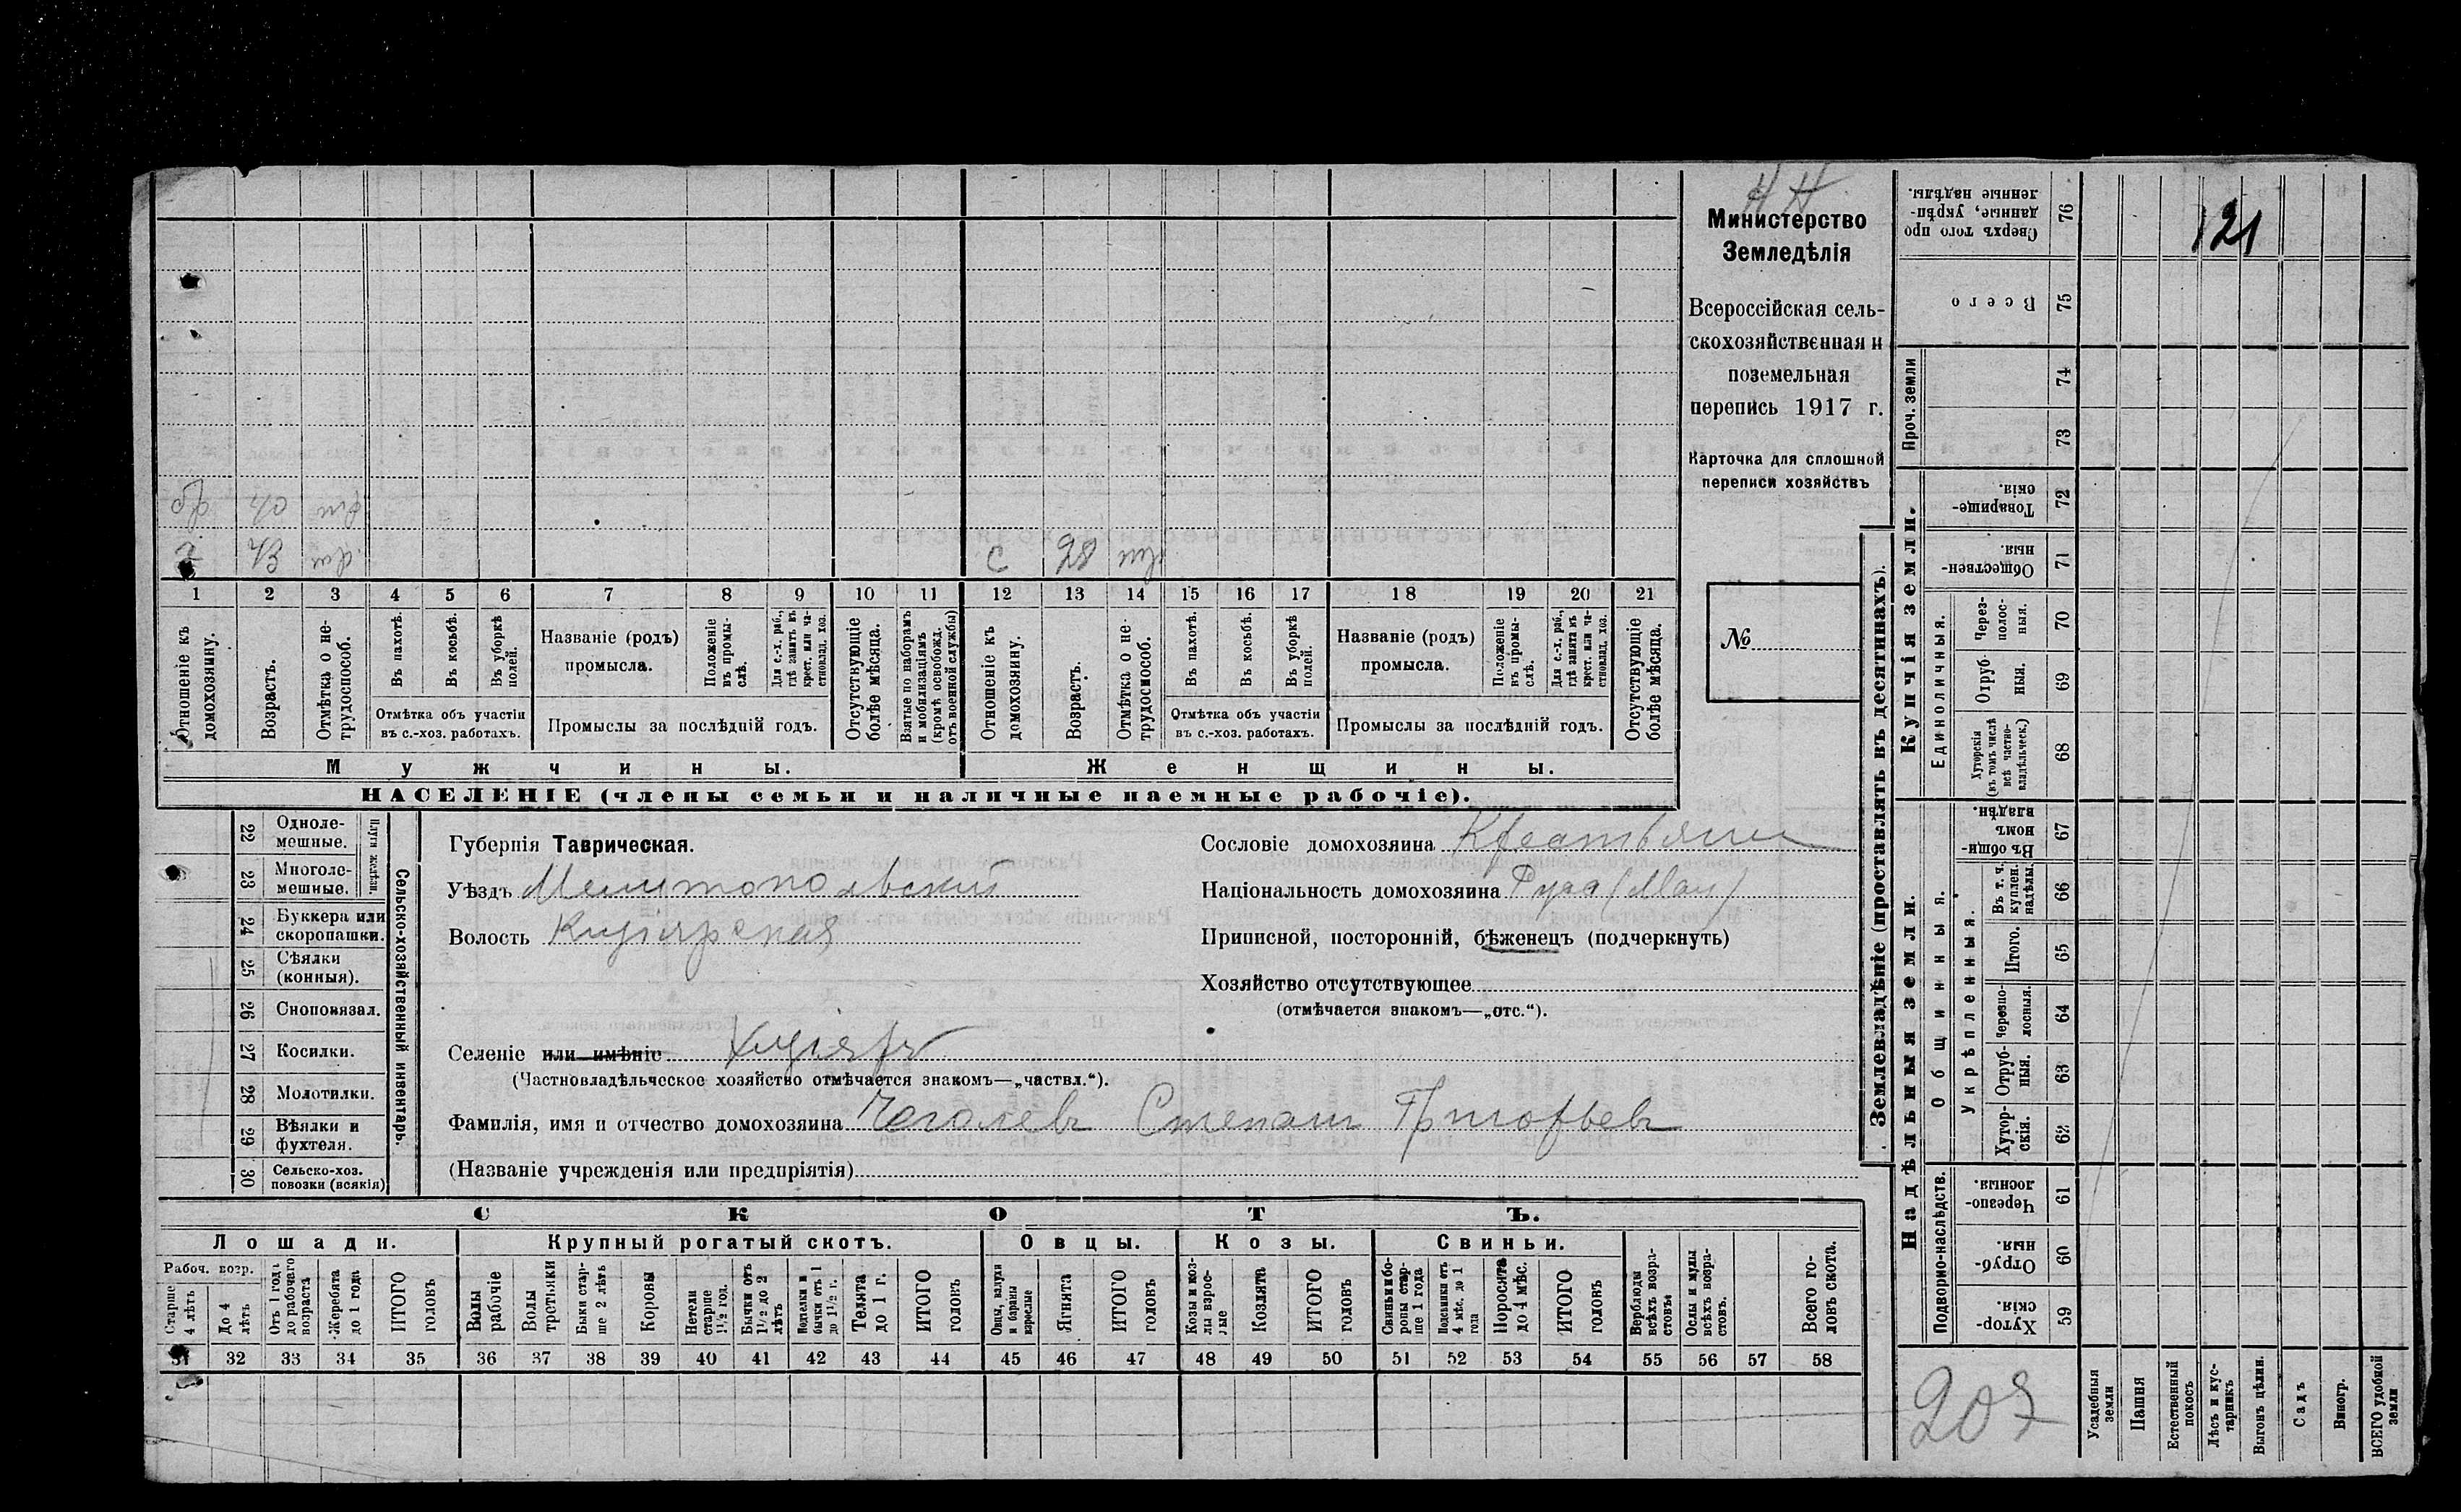 Н Н
Министерство
Земледѣлія
Всероссійская сель-
скохозяйственная и
поземельная
перепись 1917 г.
Карточка для сплошной
переписи хозяйствъ
№
с 28
1 2 3 4 5 6 7 8 9 10 11 12 13 14 15 16 17 18 19 20 21
Отношеніе къ домохозяину.
Возрастъ.
Отмѣтка о не-трудоспособ.
Въ пахотѣ.
Въ косьбѣ.
Въ уборкѣ полей.
Отмѣтка объ участіи въ с.-хоз. работахъ.
Названіе (родъ) промысла.
Положеніе въ промы-слѣ.
Для с.-х. раб., гдѣ занятъ въ крест. или ча-стновлад. хоз.
Промыслы за послѣдній годъ.
Отсутствующіе болѣе мѣсяца.
Взятые по наборамъ и мобилизаціямъ (кромѣ освобожд. отъ военной службы)
Отношеніе къ домохозяину.
Возрастъ.
Отмѣтка о не-трудоспособ.
Въ пахотѣ.
Въ косьбѣ.
Въ уборкѣ полей.
Отмѣтка объ участіи въ с.-хоз. работахъ.
Названіе (родъ) промысла.
Положеніе въ промы-слѣ.
Для с.-х. раб., гдѣ занята въ крест. или ча-стновлад. хоз.
Промыслы за послѣдній годъ.
Отсутствующіе болѣе мѣсяца.
Мужчины. Женщины.
НАСЕЛЕНІЕ (члены семьи и наличные наемные рабочіе).
22 Одноле-мешные.
23 Многоле-мешные.
Плуги желѣзн.
24 Буккера или скоропашки.
25 Сѣялки (конныя).
26 Сноповязал.
27 Косилки.
28 Молотилки.
29 Вѣялки и фухтеля.
30 Сельско-хоз. повозки (всякія)
Сельско-хозяйственный инвентарь.
Губернія Таврическая.
Уѣздъ Мелитопольскій
Волость Кизіярская
Селеніе или имѣніе Кизіяръ
(Частновладѣльческое хозяйство отмѣчается знакомъ—„частвл.“).
Фамилія, имя и отчество домохозяина Степанъ Григорьевъ
(Названіе учрежденія или предпріятія)
Сословіе домохозяина Крестьянин
Національность домохозяина
Приписной, посторонній, бѣженецъ (подчеркнуть)
Хозяйство отсутствующее
(отмѣчается знакомъ—„отс.“).
СКОТЪ.
Лошади. Крупный рогатый скотъ. Овцы. Козы. Свиньи.
Рабоч. возр.
Старше 4 лѣтъ
До 4 лѣтъ
Отъ 1 года до рабочаго возраста
Жеребята до 1 года
ИТОГО головъ
Волы рабочіе
Волы третьяки
Быки стар-ше 2 лѣтъ
Коровы
Нетели старше 1½ год.
Бычки отъ 1½ до 2 лѣтъ
Подтелки и бычки отъ 1 до 1½ г.
Телята до 1 г.
ИТОГО головъ
Овцы, валухи и бараны взрослые
Ягнята
ИТОГО головъ
Козы и коз-лы взрос-лые
Козлята
ИТОГО головъ
Свиньи и бо-ровы стар-ше 1 года
Подсвинки отъ 4 мѣс. до 1 года
Поросята до 4 мѣс.
ИТОГО головъ
Верблюды всѣхъ возра-стовъ
Ослы и мулы всѣхъ возра-стовъ.
Всего го-ловъ скота.
31 32 33 34 35 36 37 38 39 40 41 42 43 44 45 46 47 48 49 50 51 52 53 54 55 56 57 58
Землевладѣніе (проставлять въ десятинахъ).
Надѣльныя земли. Купчія земли. Проч. земли
Подворно-наслѣдств. Общинныя. Укрѣпленныя. Единоличныя.
76 Сверхъ того про-данные, укрѣп-ленные надѣлы.
75 Всего
74
73
72 Товарище-скія.
71 Обществен-ныя.
70 Через-полос-ныя.
69 Отруб-ныя.
68 Хуторскія (въ томъ числѣ всѣ частно-владѣльческ.)
67 Въ общи-номъ владѣн.
66 Въ т. ч. куплен. надѣлы.
65 Итого.
64 Черезпо-лосныя.
63 Отруб-ныя.
62 Хутор-скія.
61 Черезпо-лосныя.
60 Отруб-ныя.
59 Хутор-скія.
Усадебныя земли
Пашня
Естественный покосъ
Лѣсъ и кус-тарникъ
Выгонъ цѣлин.
Садъ
Виногр.
ВСЕГО удобной земли
121
207